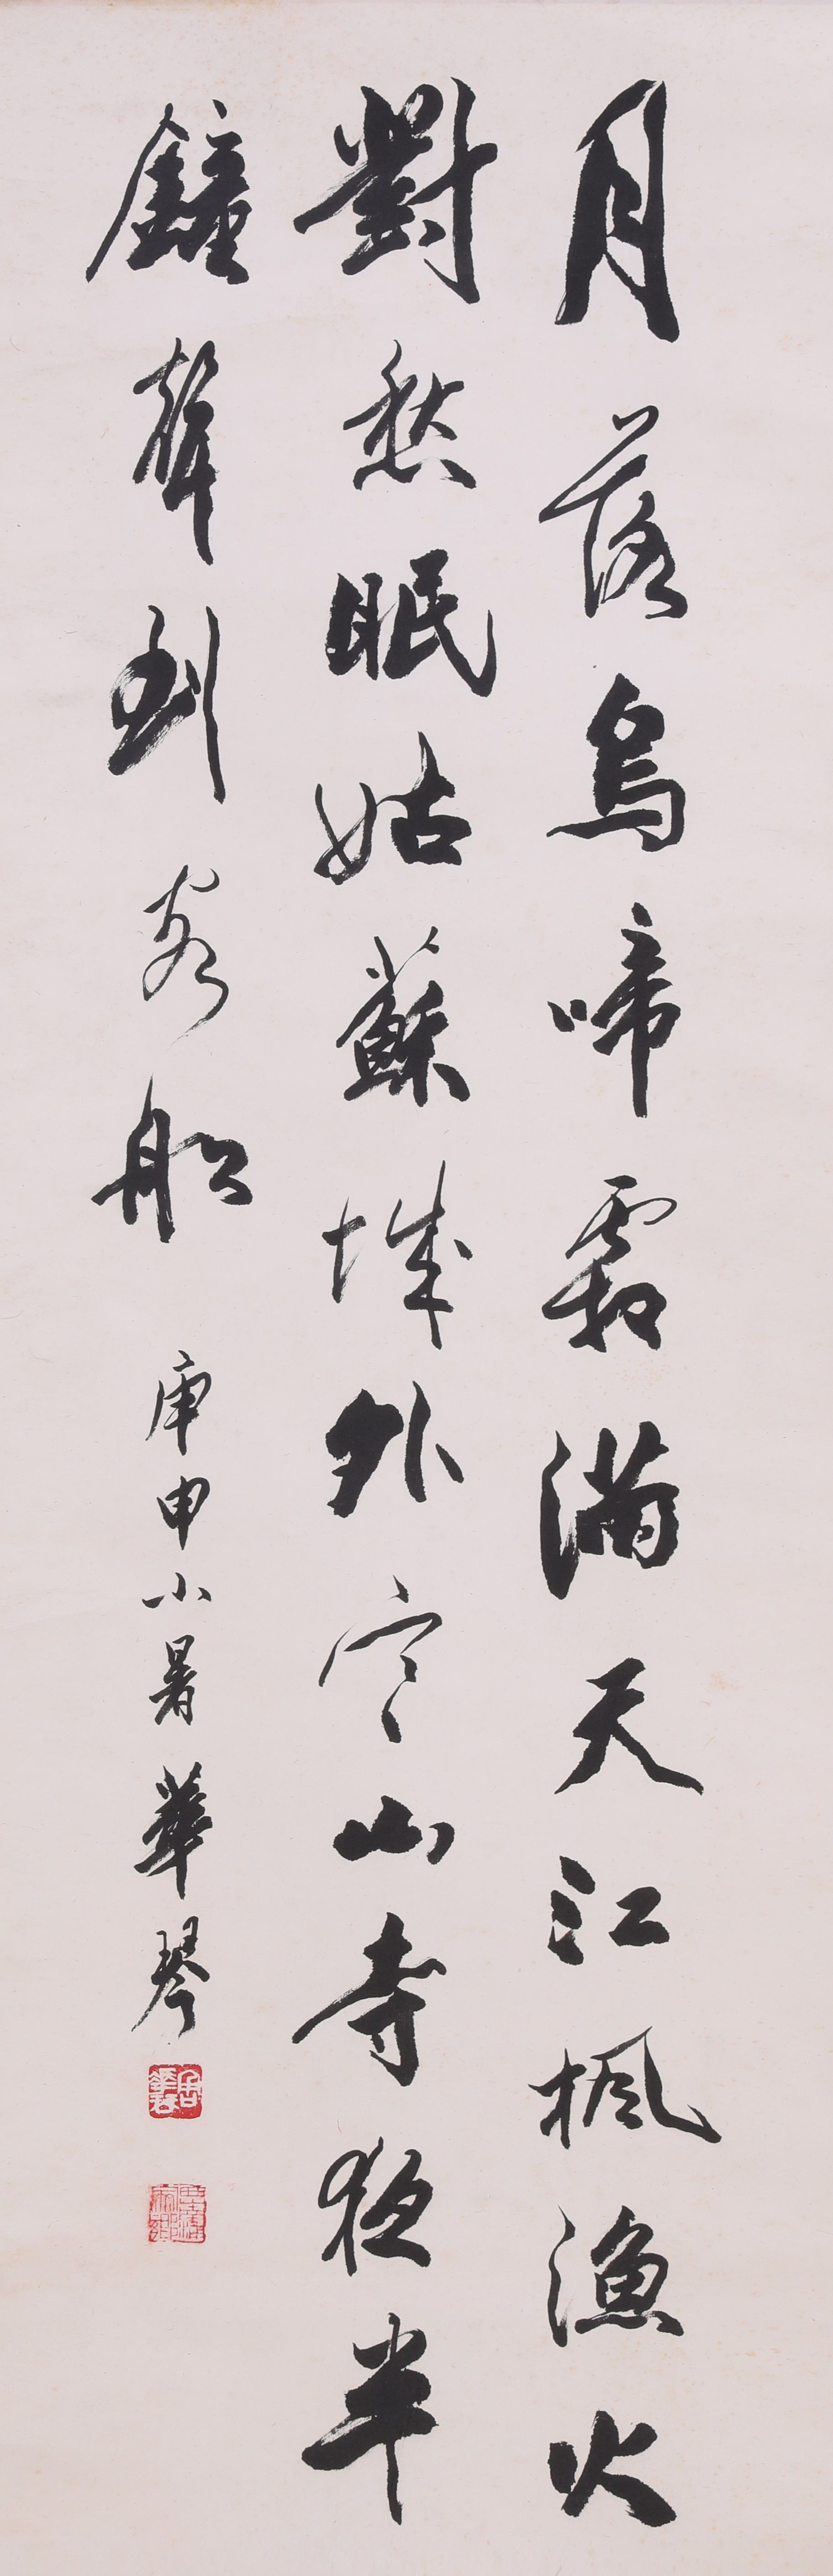 月落烏啼霜满天江楓漁火
對愁眠姑蘇城外寒山寺夜半
鐘聲到客船
庚申小暑華琴